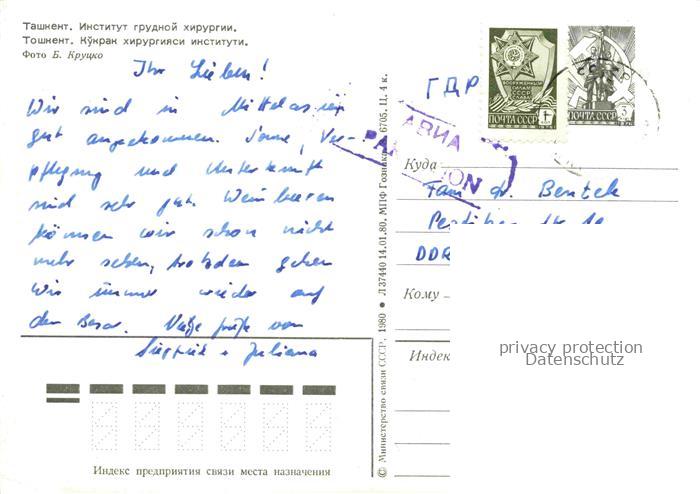 Ташкент. Институт грудной хирургии.
Тошкент. Кўкрак хирургияси институти.
Фото Б. Круцко
Ihr Lieben!
Wir sind in Mittelasien
gut angekommen. Sonne, Ver-
pflegung und Unterkunft
sind sehr gut. Weinbeeren
können wir schon nicht
mehr sehen, trotzdem gehen
wir immer wieder auf
den Basar. Viele Grüße von
Siegfried + Juliana
Индекс предприятия связи места назначения
© Министерство связи СССР, 1980 ● Л 37440 14.01.80. МПФ Гознака. 6705. Ц. 4 к.
ГДР
АВИА
PAR AVION
ВООРУЖЕННЫМ СИЛАМ СССР
ПОЧТА СССР
ПОЧТА СССР 3
Куда
Fam. Dr.
DDR
Кому
Индекс
privacy protection
Datenschutz